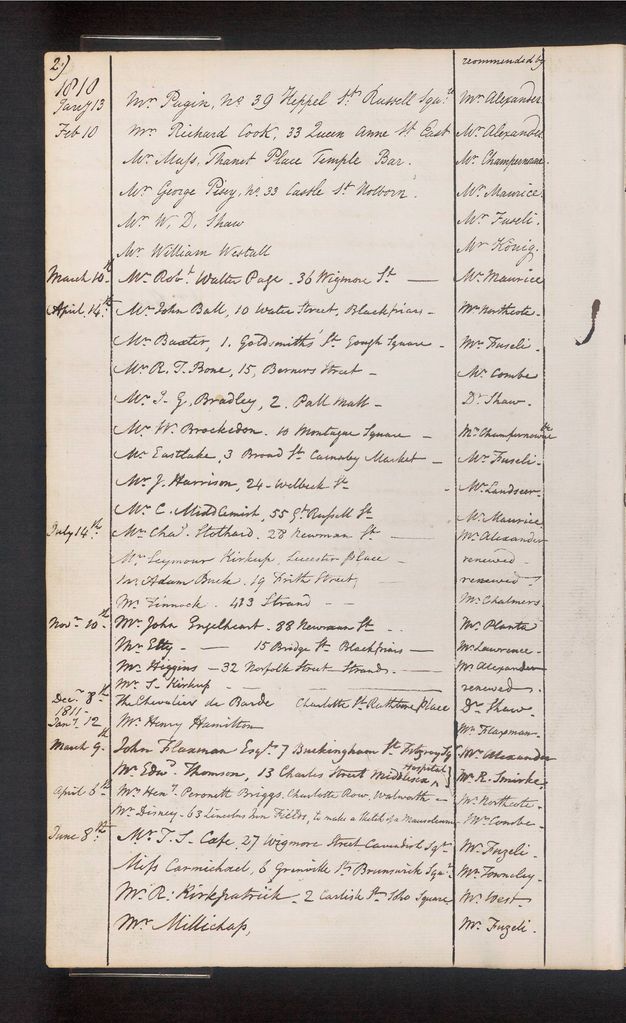 2.)
recommended by
1810
Jany 13 Mr Pugin, No 39 Keppel St. Russell Squre Mr Alexander
Feb 10 Mr Richard Cook, 33 Queen Anne St East Mr Alexander
Mr Mass, Thanet Place Temple Bar. Mr Champernowne.
Mr George Pisey, No 33 Castle St Holborn. Mr Maurice.
Mr W. D. Shaw Mr Fuseli.
Mr William Westall Mr König.
March 10th Mr Robt Walter Page - 36 Wigmore St — Mr Maurice
April 14th Mr John Ball, 10 Water Street, Blackfriars - Mr Northcote.
Mr Baxter, 1. Goldsmiths' St Gough Square - Mr Fuseli.
Mr R. T. Bone, 15, Berners Street - Mr Combe
Mr T. G. Bradley, 2. Pall Mall - Dr Shaw.
Mr W. Brockedon. 10 Montague Square - Mr Champernowne
Mr Eastlake, 3 Broad St Carnaby Market - Mr Fuseli.
Mr J. Harrison, 24 - Welbeck St - Mr Landseer.
Mr C. Middlemist, 55 Gt Russell St Mr Maurice
July 14th Mr Chas Stothard. 28 Newman St — Mr Alexander
Mr Seymour Kirkup, Leicester Place - renewed -
Mr Adam Buck. 19 Frith Street, renewed -
Mr Finnock. 483 Strand - - Mr Chalmers
Novr 10th Mr John Engelheart - 88 Newman St - . Mr Planta
Mr Etty - — 15 Bridge St Blackfriars — Mr Lawrence.
Mr Higgins - 32 Norfolk Street Strand. — Mr Alexander
Mr S. Kirkup — renewed.
Decr 8th The Chevalier de Barde Charlotte St. Rathbone Place Dr Shaw.
1811.
Jany 12 Mr Henry Hamilton Mr Flaxman.
March 9th John Flaxman Esqr. 7 Buckingham St Fitzroy Sq Mr Alexander
Hospital
Mr Edwd Thomson, 13 Charles Street Middlesex ^ Mr R. Smirke.
April 6th Mr Heny Peronett Briggs, Charlotte Row, Walworth — Mr Northcote.
Mr Disney - 63 Lincolns Inn Fields, to make a sketch of a Mausoleum Mr Combe.
June 8th Mr T. S. Cafe, 27 Wigmore Street Cavendish Sqr. Mr Fuzeli.
Miss Carmichael, 6 Grenville St Brunswick Squre Mr Towneley.
Mr R. Kirkpatrick - 2 Carlisle St Soho Square Mr West.
Mr Millichap, Mr Fuzeli.